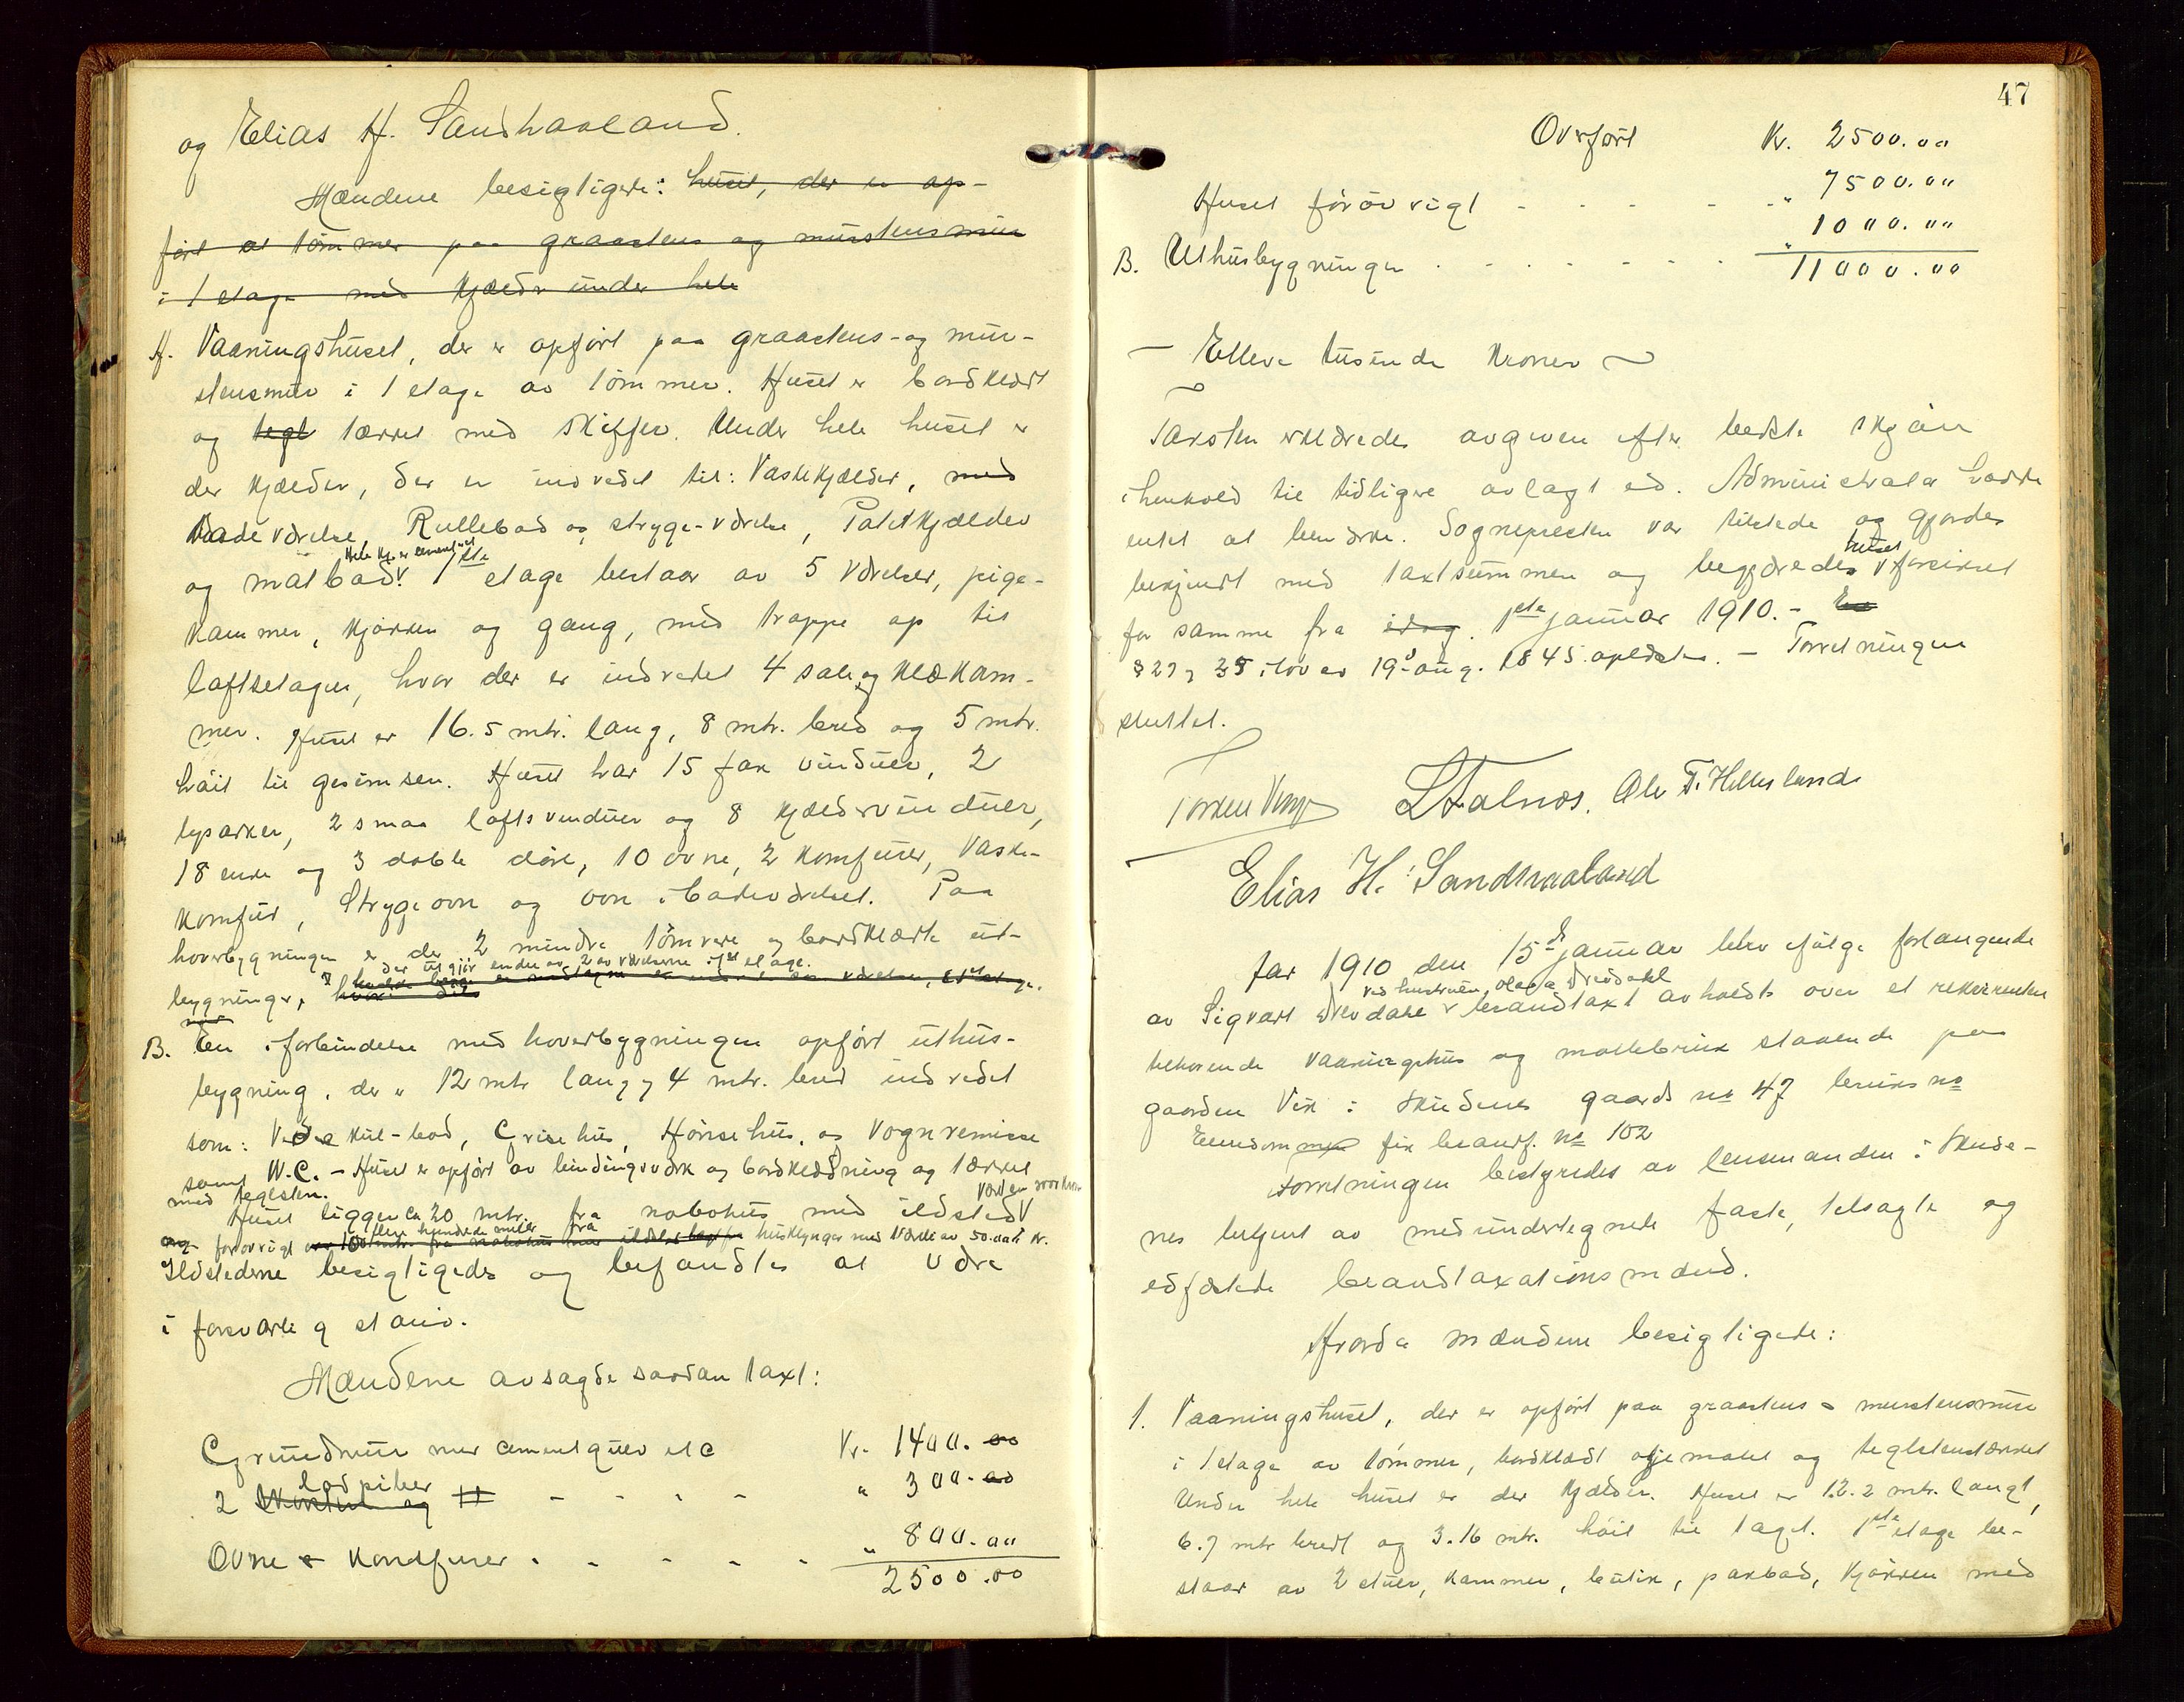 og Elias H. Sandhaaland.
Mændene besigtigede: huset, der er op-
ført av tømmer paa graastens og murstensmur
i 1 etage med kjælder under hele
A. Vaaningshuset, der er opført paa graastens- og mur-
stensmur i 1 etage av tømmer. Huset er bordklædt
og tegl tækket med skiffer. Under hele huset er
der kjælder, der er indredet til: Vaskekjælder, med
Badeværelse, Rullebod og stryge-værelse, Potetkjælder
Hele kj. er cementert
og matbod. 1ste etage bestaar av 5 værelser, pige-
kammer, kjøkken og gang, med trappe op til
loftsetagen, hvor der er indredet 4 sale og klækam-
mer. Huset er 16.5 mtr. lang, 8 mtr. bred og 5 mtr.
høit til gesimsen. Huset har 15 fag vinduer, 2
lysarker, 2 smaa loftsvinduer og 8 kjældervinduer,
18 enke og 3 doble døre, 10 ovne, 2 komfurer, Vaske-
komfur, Strygeovn og ovn i badeværelset. Paa
hovedbygningen er der 2 mindre tømrede og bordklædte ut-
der utgjør endel av 2 av værelserne i 1ste etage.
bygninger,
B. En i forbindelse med hovedbygningen opført uthus-
bygning, der er 12 mtr lang og 4 mtr. bred indredet
som: Ved & kul-bod, Grisehus, Hønsehus, og Vognremisse
samt W.C. - Huset er opført av bindingsværk og bordklædning og tækket
med teglsten.
Huset ligger ca 20 mtr. fra nabohus med ildsted
flere hundrede meter fra
og forøvrigt husklynger med værdi av 50.000 kr.
Ildstederne besigtigedes og befandtes at være
i forsvarlig stand.
Mændene avsagde saadan taxt:
Grundmur med cementgulv etc Kr. 1400.00
lodpiber
2 - - - - " 300.00
Ovne & Komfurer - - - - " 800.00
2500.00
47
Overført Kr. 2500.00
Huset forøvrigt - - - - - " 7500.00
B. Uthusbygningen - - - - - " 1000.00
11000.00
— Elleve tusinde kroner —
Taxsten erklæredes avgiven efter bedste skjøn
i henhold til tidligere avlagt ed. Administrator hadde
intet at bemærke. Sognepresten var tilstede og gjordes
huset
bekjendt med taxtsummen og begjæredes forsikret
for samme fra idag. 1ste januar 1910. -
§ 27 og 35 i lov av 19d aug. 1845. oplæstes. - Forretningen
sluttet.
L Falnes. Ole T. Hillesland
Elias H. Sandhaaland
Aar 1910 den 15de januar blev ifølge forlangende
ved hustruen, Olava Drevdahl
av Sigvart Drevdahl brandtaxt avholdt over et rekvirenten
tilhørende vaaningshus og møllebruk staaende paa
gaarden Vik i Skudenes gaards no 47 bruks no
Eiendommen fik brandf. No 102
Forretningen bestyredes av lensmanden i Skude-
nes betjent av medundertegnede faste, tilsagte og
edfæstede brandtaxationsmænd.
Hvorda mændene besigtigede:
1. Vaaningshuset, der er opført paa graastens & murstensmur
i 1 etage av tømmer, bordklædt oljemalet og teglstenstækket
Under hele huset er der kjælder. Huset er 12.2 mtr. langt,
6.7 mtr bredt og 3.16 mtr. høit til taget. 1ste etage be-
staar av 2 stuer, kammer, butik, pakbod, kjøkken med